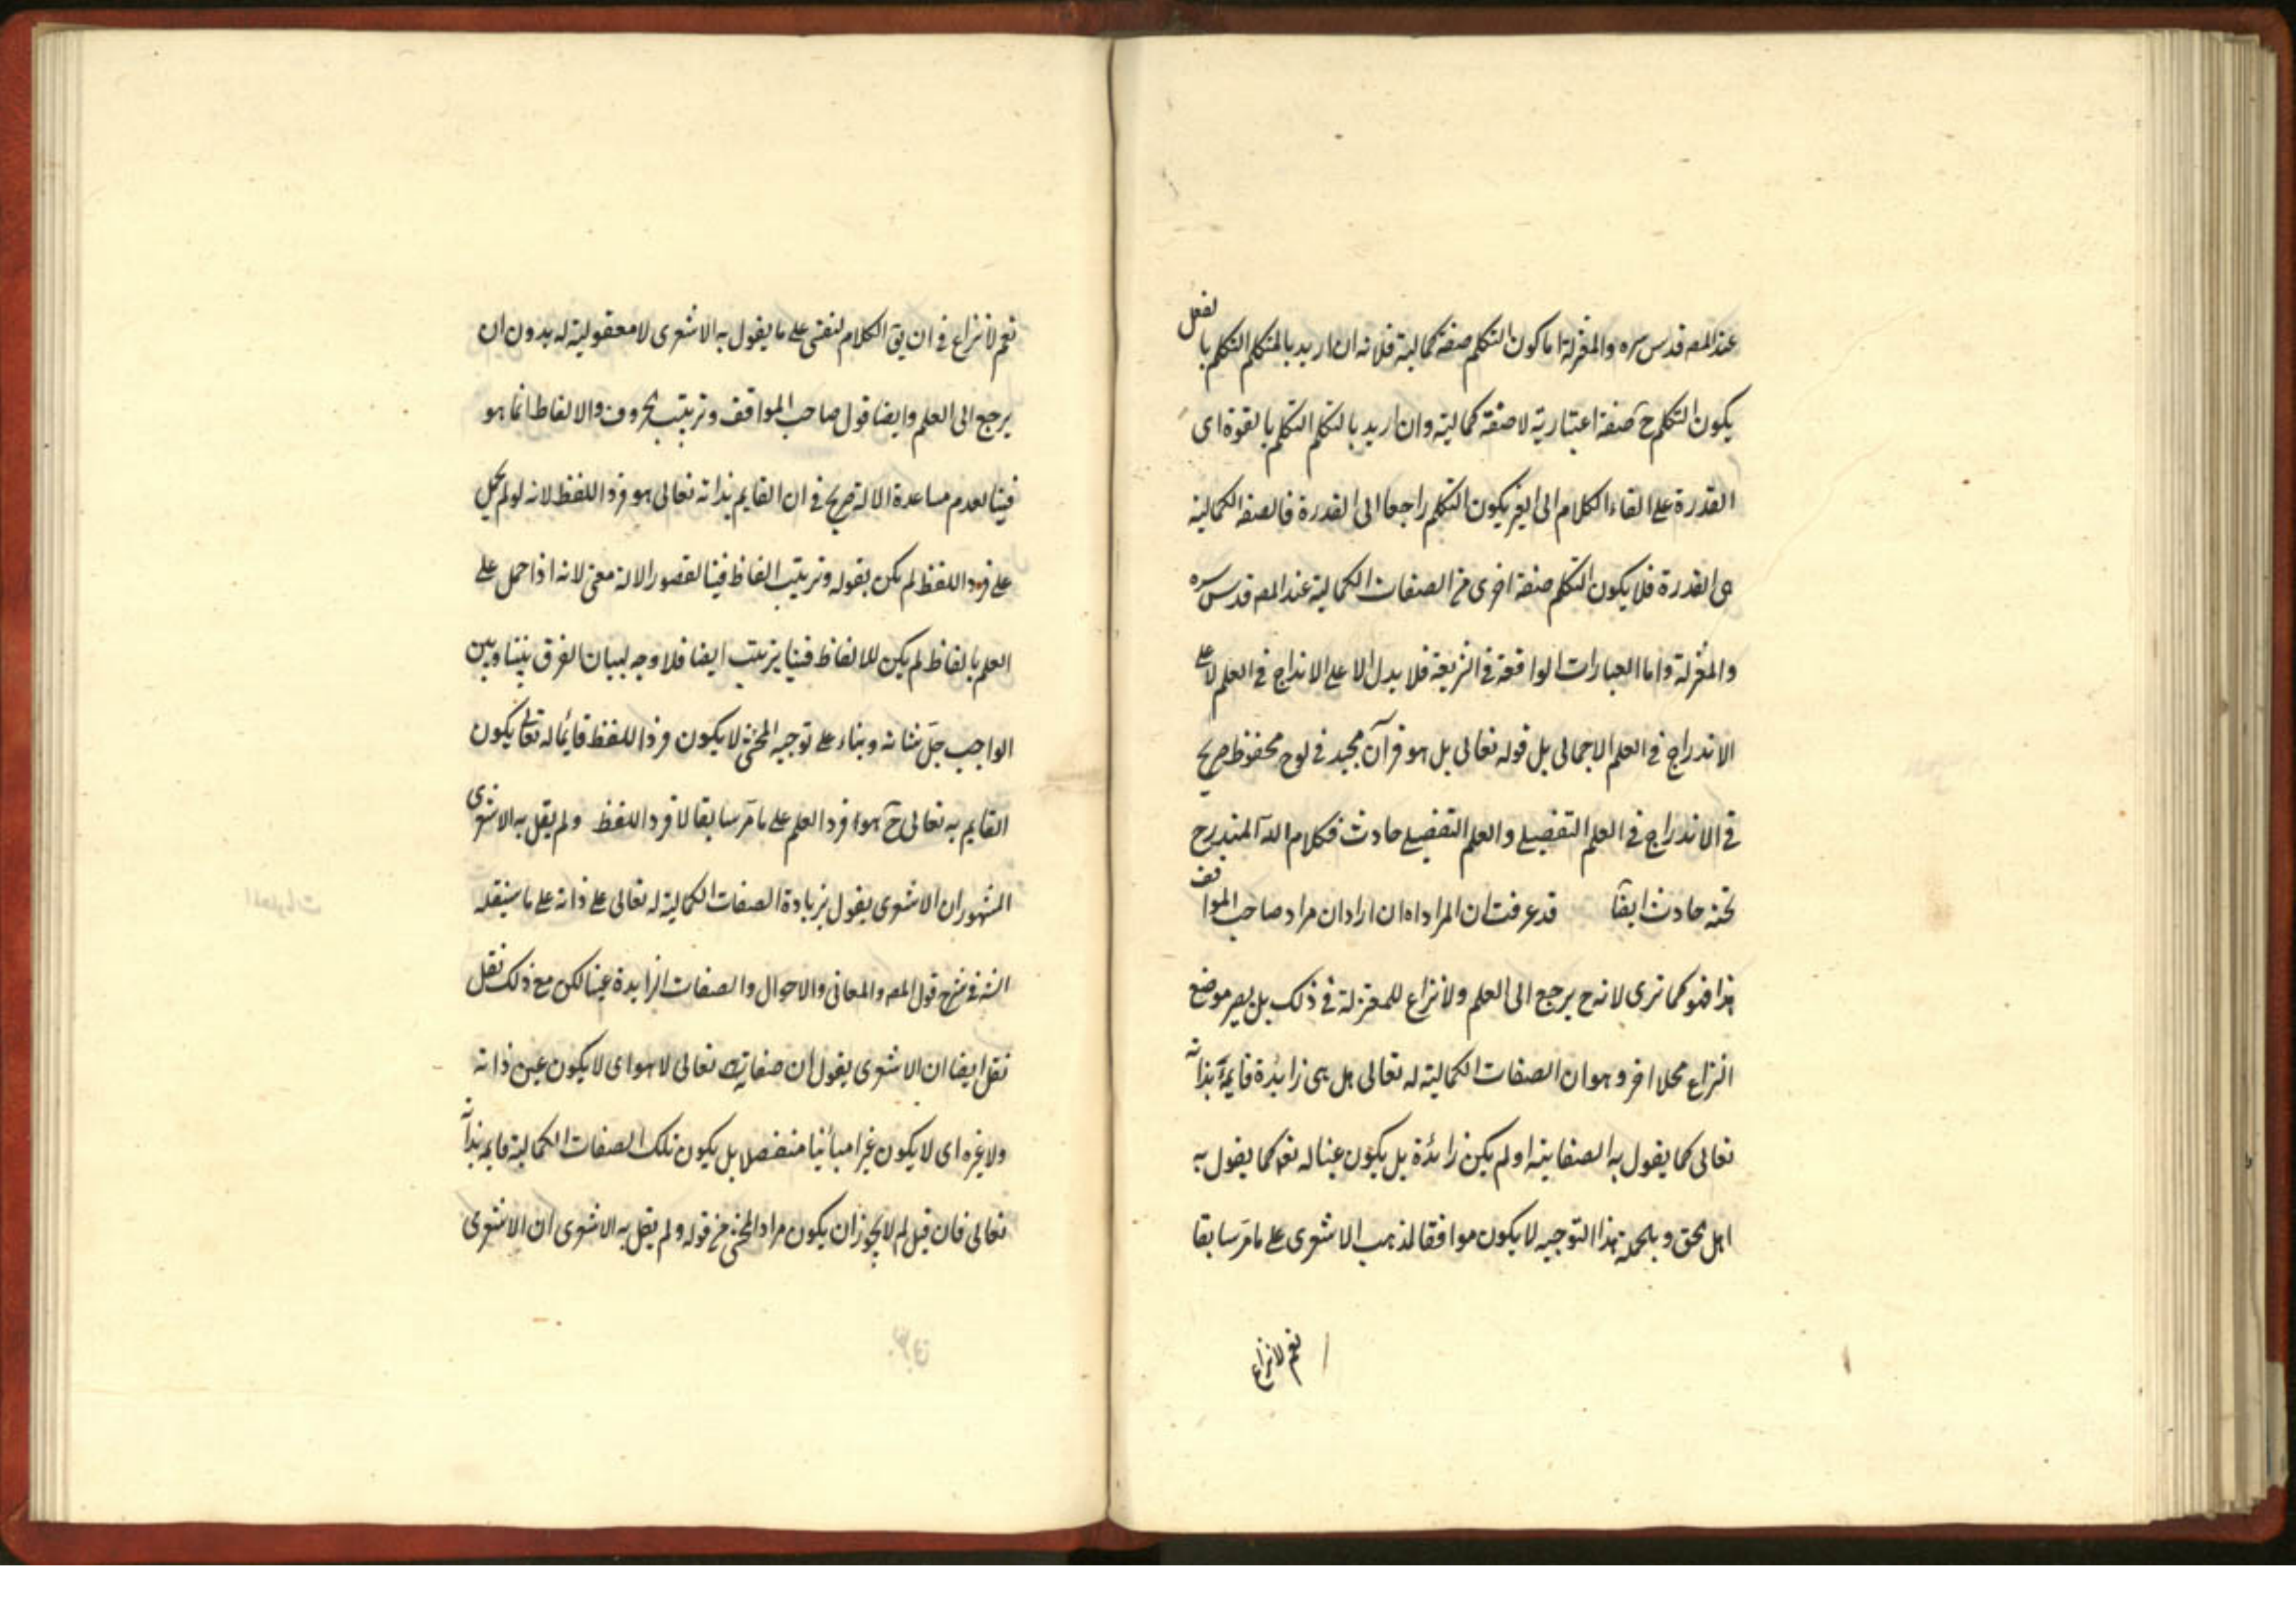 عند المصه قدس سره والمعتزلة اما كون التكلم صفة كمالية فلانه ان اريد بالمتكلم التكلم بالفعل
يكون التكلم ح صفة اعتبارية لا صفة كمالية وان اريد بالتكلم التكلم بالقوة اى
القدرة على القاء الكلام الى الغير يكون التكلم راجعا الى القدرة فالصفة الكمالية
هى القدرة فلا يكون التكلم صفة اخرى من الصفات الكمالية عند المصه قدس سره
والمعتزلة واما العبارات الواقعة فى الشريعة فلا يدل الا على الاندراج فى العلم لا على
الاندراج فى العلم الاجمالى بل قوله تعالى بل هو قرآن مجيد فى لوح محفوظ صريح
فى الاندراج فى العلم التفصيلى والعلم التفصيلى حادث فكلام الله المندرج
تحته حادث ايضا قد عرفت ان المراد اه ان اراد ان مراد صاحب المواقف
هذا فهو كما ترى لانه ح يرجع الى العلم ولا نزاع للمعتزلة فى ذلك بل يصير موضع
النزاع محلا اخر وهو ان الصفات الكمالية له تعالى هل هى زائدة قايمة بذاته
تعالى كما يقول به الصفاتية او لم يكن زائدة بل يكون عينا له تعالى كما يقول به
اهل الحق وبالجملة هذا التوجيه لا يكون موافقا لمذهب الاشعرى على ما مر سابقا
نعم لا نزاع
نعم لا نزاع فى ان يق الكلام النفسى على ما يقول به الاشعرى لا معقولية له بدون ان
يرجع الى العلم وايضا قول صاحب المواقف وترتب الحروف والالفاظ انما هو
فينا لعدم مساعدة الالة صريح فى ان القايم بذاته تعالى هو فرد اللفظ لانه لو لم يحمل
على فرد اللفظ لم يكن بقوله وترتب الفاظ فينا لقصور الالة معنى لانه اذا حمل على
العلم بالفاظ لم يكن للالفاظ فينا يترتب ايضا فلا وجه لبيان الفرق بيننا وبين
الواجب جل شانه وبناء على توجيه المحشى لا يكون فرد اللفظ قائما له تعالى يكون
القايم به تعالى ح هو فرد العلم على ما مر سابقا لا فرد اللفظ ولم يقل به الاشعرى
المشهور ان الاشعرى يقول بزيادة الصفات الكمالية له تعالى على ذاته على ما سينقله
الشه فى شرح قول المصه والمعانى والاحوال والصفات الزايدة عينا لكن مع ذلك نقل
نقل ايضا ان الاشعرى يقول ان صفاته تعالى لا هو اى لا يكون عين ذاته
ولا غيره اى لا يكون غيرا مبائنا منفصلا بل يكون تلك الصفات الكمالية قايمه بذاته
تعالى فان قيل لم لا يجوز ان يكون مراد المحشى من قوله ولم يقل به الاشعرى ان الاشعرى